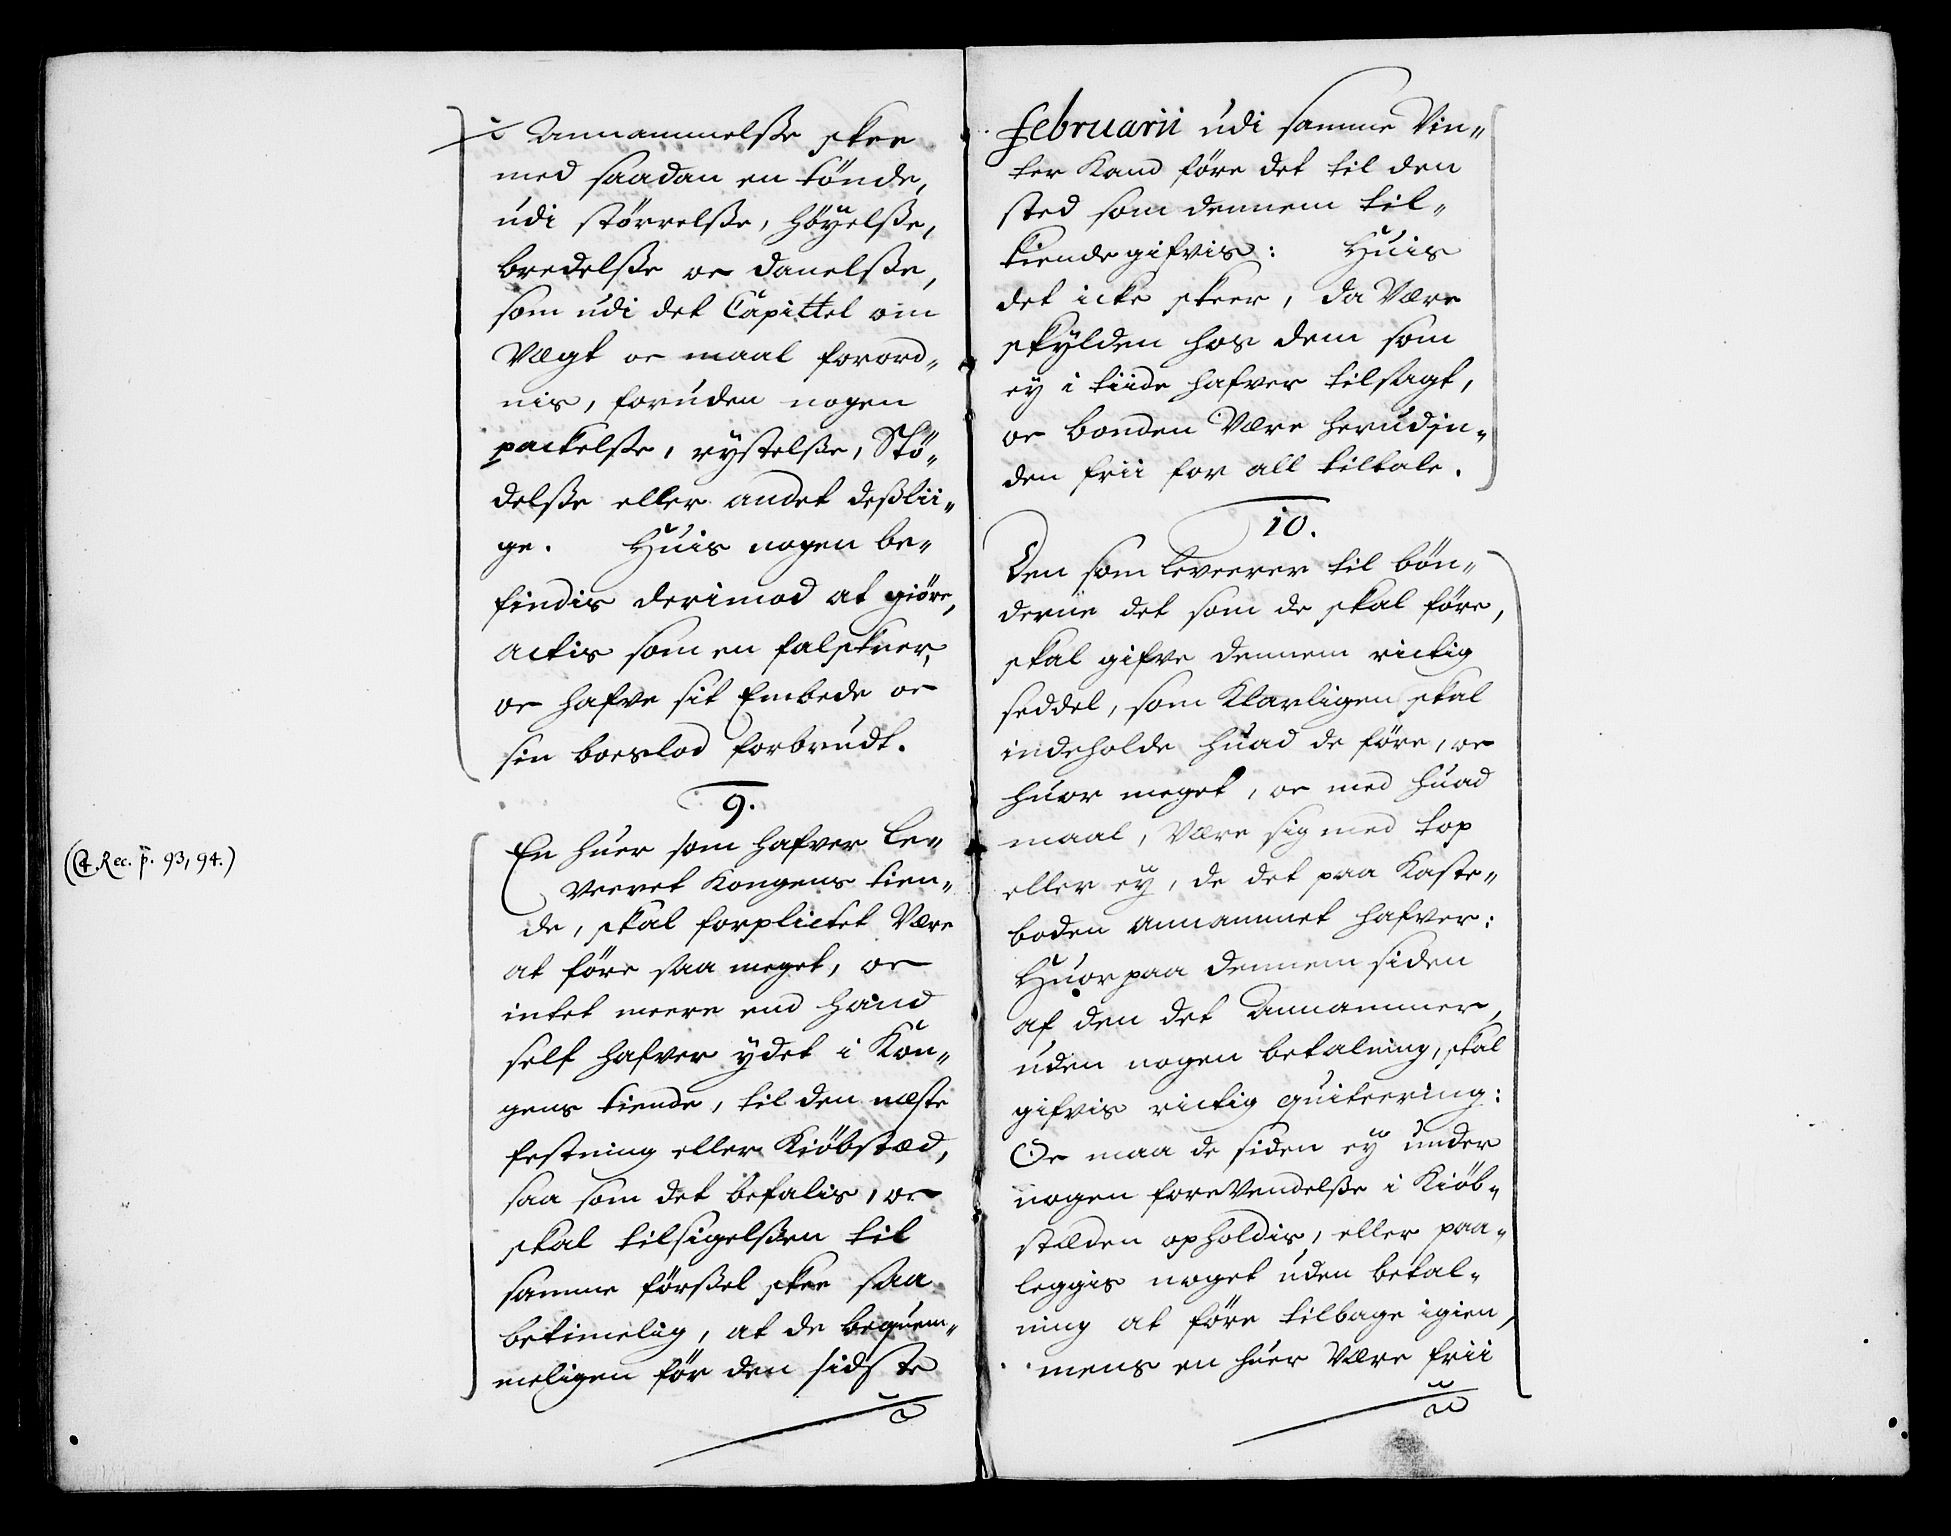 Annammelsße skee
med saadan en tönde,
udi störrelsße, höyelsße,
bredelsße oc danelsße,
som udi det Capittel om
Vægt oc maal forord„
nis, foruden nogen
packelsße, rystelsße, Stö„
delsße eller andet deßlii„
ge. Huis nogen be„
findis derimod at giöre,
actis som en falskner,
oc hafve sit Embede oc
sin boeslod forbrudt.
9.
En huer som hafver le„
veeret Kongens tien„
de, skal forplictet Være
at före saa meget, oc
intet meere end hand
self hafver ydet i Kon„
gens tiende, til den næste
festning eller Kiöbstæd,
saa som det befalis, oc
skal tilsigelsßen til
samme försßel skee saa
betimelig, at de beqvem„
meligen för den sidste
(4. Rec. p. 93, 94.)
Februarii udi samme Vin„
ter Kand före det til den
sted som dennem til„
kiende gifvis: Huis
det icke skeer, da Være
skylden hos dem som
ey i tiide hafver tilsagt,
oc bonden Være herudjn„
den frii for all tiltale.
10.
Den som leveerer til bön„
derne det som de skal före,
skal gifve dennem rictig
seddel, som Klarligen skal
indeholde huad de före, oc
huor meget, oc med huad
maal, Være sig med top
eller ey, de det paa Kaste„
boden annammet hafver:
Huorpaa dennem siden
af den det Annammer,
uden nogen betalning, skal
gifvis rictig quiteering:
Oc maa de siden ey under
nogen foreVendelsße i Kiöb„
stæden opholdis, eller paa„
leggis noget uden betal„
ning at före tilbage igien,
mens en huer Være frii